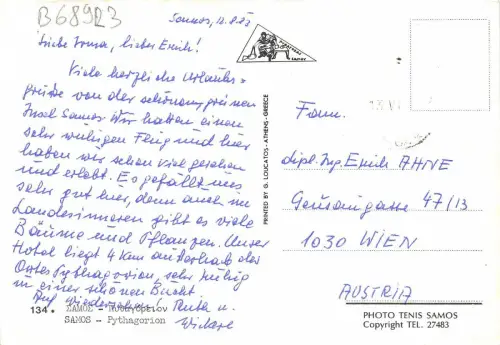 B68923
Samos, 12.8.83
Liebe Irma, lieber Erich!
Viele herzliche Urlaubs=
grüße von der schönen grünen
Insel Samos. Wir hatten einen
sehr ruhigen Flug und hier
haben wir schon viel gesehen
und erlebt. Es gefällt uns
sehr gut hier, denn auch im
Landesinneren gibt es viele
Bäume und Pflanzen. Unser
Hotel liegt 4 km außerhalb des
Ortes Pythagorion, sehr ruhig
in einer schönen Bucht.
Auf Wiedersehen! u.
134. ΣΑΜΟΣ - Πυθαγόρειον
SAMOS - Pythagorion
PRINTED BY G. LOUCATOS - ATHENS - GREECE
Fam.
dipl. Ing. Erich AHNE
47/13
1030 WIEN
AUSTRIA
PHOTO TENIS SAMOS
Copyright TEL. 27483